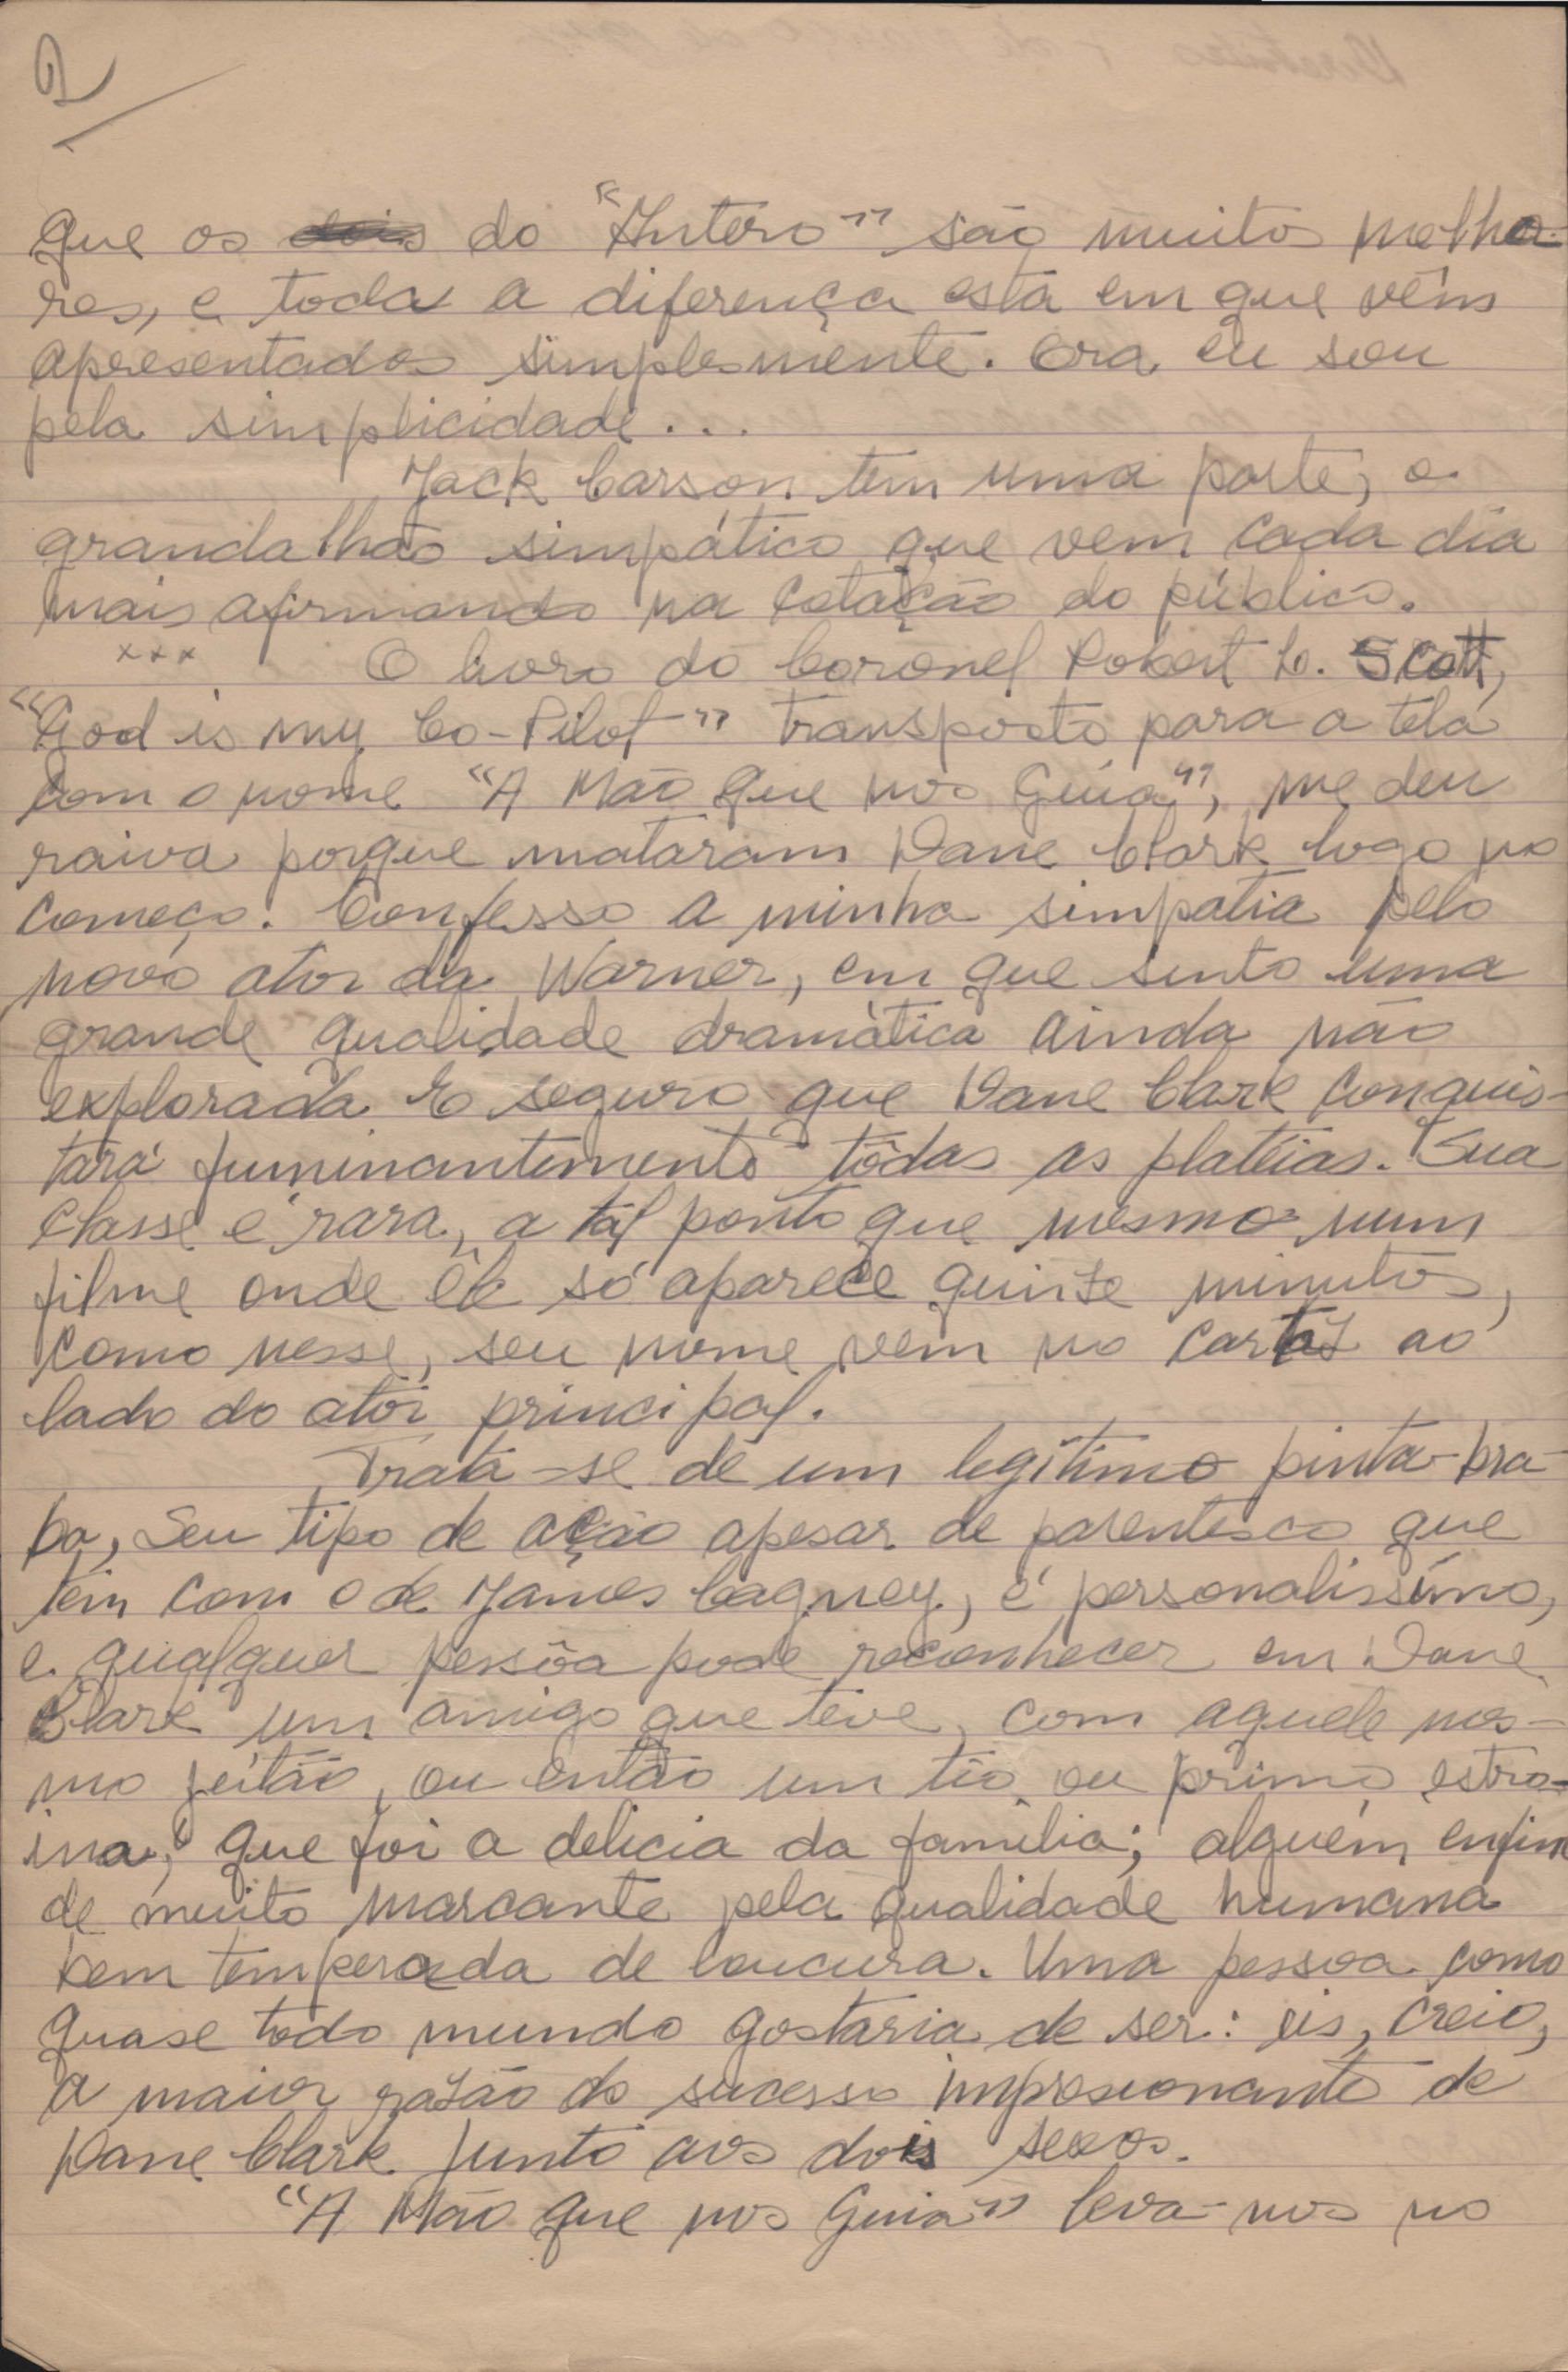 2
que os do "Antero" são muito melho-
res, e toda a diferença está em que vêm
apresentados simplesmente. Ora eu sou
pela simplicidade...
Jack Carson tem uma parte, o
grandalhão simpático que vem cada dia
mais afirmando na cotação do público.
xxx O livro do Coronel Robert L. Scott,
"God is my Co-Pilot" transposto para a tela
com o nome "A Mão que nos Guia", me deu
raiva porque mataram Dane Clark logo no
começo. Confesso a minha simpatia pelo
novo ator da Warner, em que sinto uma
grande qualidade dramática ainda não
explorada. E seguro que Dane Clark conquis-
tará fuminantemente tôdas as platéias. Sua
classe é rara, a tal ponto que mesmo num
filme onde êle só aparece quinze minutos,
como nesse, seu nome vem no cartaz ao
lado do ator principal.
Trata-se de um legítimo pinta-bra-
ba, seu tipo de ação apesar de parentesco que
tem com o de James Cagney, é personalissimo,
e qualquer pessôa pode reconhecer em Dane
Clark um amigo que teve, com aquele mes-
mo jeitão, ou então um tio ou primo estro-
ina, que foi a delicia da família; alguém enfim
de muito marcante pela qualidade humana
bem temperada de loucura. Uma pessoa como
quase todo mundo gostaria de ser: eis, creio,
a maior razão do sucesso impressionante de
Dane Clark junto aos dois sexos.
"A Mão que nos Guia" leva-nos no